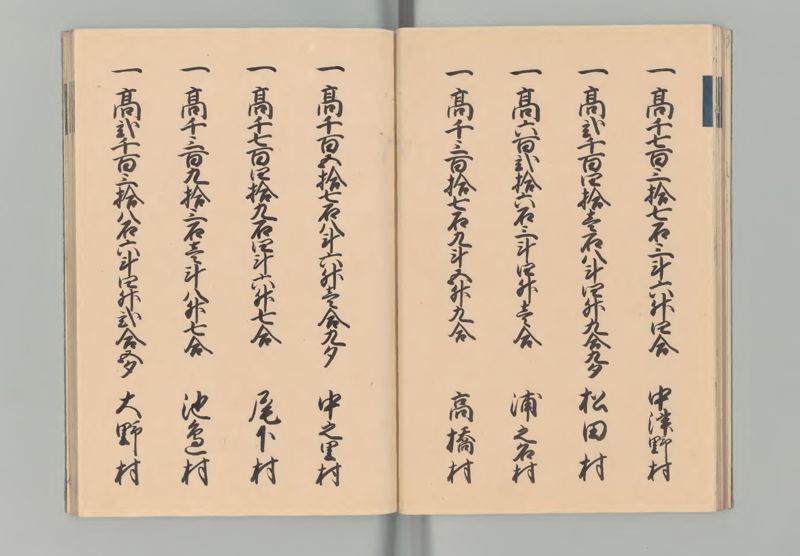 一高千七百三拾七石三斗六升四合 中津野村
一高弐千百四拾壱石八斗四升九合九夕 松田村
一高六百弐拾六石三斗四升壱合 浦之名村
一高千三百拾七石九斗五升九合 高橋村
一高千百五拾七石八斗六升壱合九夕 中之里村
一高千七百四拾九石四斗六升七合 尾下村
一高千三百九拾三石壱斗八升七合 池辺村
一高弐千百三拾八石六斗四升弐合五夕 大野村